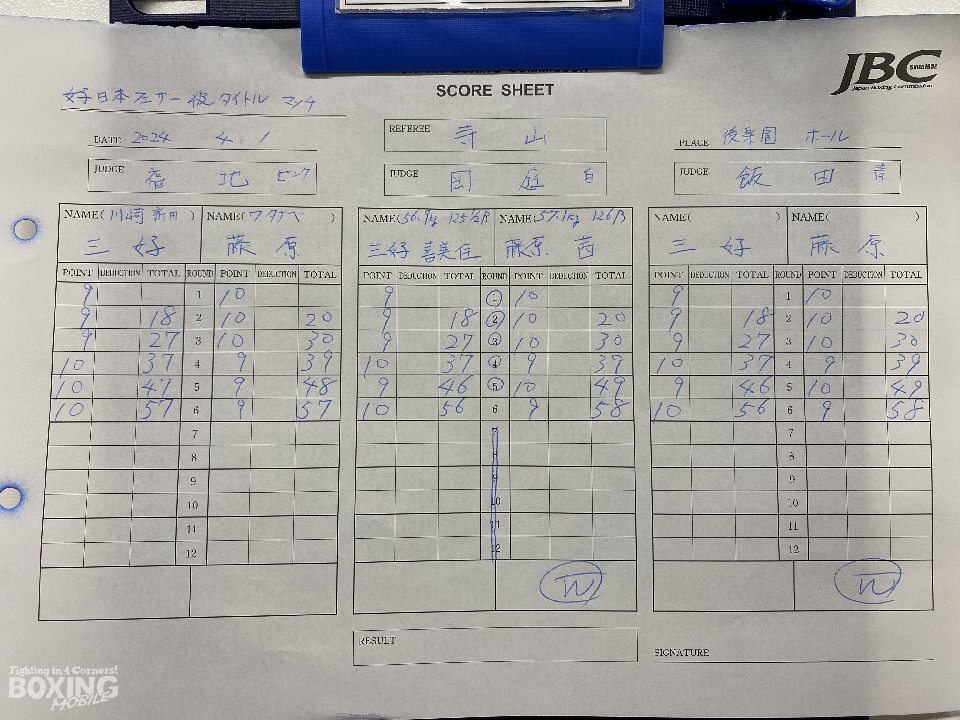 SCORE SHEET
JBC
SINCE 1952
Japan Boxing Commission
女子日本フェザー級タイトルマッチ
DATE 2024 4.1
REFEREE 寺山
PLACE 後楽園ホール
JUDGE 福地 ピンク
JUDGE 岡庭 白
JUDGE 飯田 青
NAME(川崎新田) NAME(ワタナベ) NAME(56.9kg 125 1/2 NAME(57.1kg 126 NAME( ) NAME( )
三好 藤原 三好喜美佳 藤原茜 三好 藤原
POINT DEDUCTION TOTAL ROUND POINT DEDUCTION TOTAL POINT DEDUCTION TOTAL ROUND POINT DEDUCTION TOTAL POINT DEDUCTION TOTAL ROUND POINT DEDUCTION TOTAL
9 1 10 9 1 10 9 1 10
9 18 2 10 20 9 18 2 10 20 9 18 2 10 20
9 27 3 10 30 9 27 3 10 30 9 27 3 10 30
10 37 4 9 39 10 37 4 9 39 10 37 4 9 39
10 47 5 9 48 9 46 5 10 49 9 46 5 10 49
10 57 6 9 57 10 56 6 9 58 10 56 6 9 58
7 7 7
8 8 8
9 9 9
10 10 10
11 11 11
12 12 12
W W
RESULT
SIGNATURE
Fighting in 4 Corners!
BOXING
MOBILE